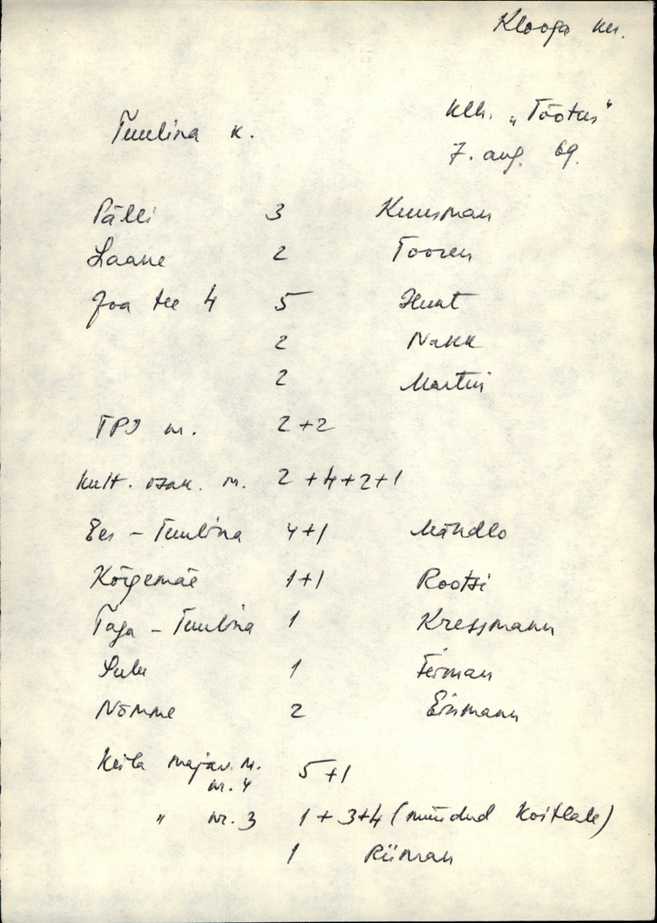 Klooga kn.
Tuulina k.
klh. „Töötus"
7. aug. 69.
Pälli 3 Kuusman
Laane 2 Tooren
Joa tee 4 5 Hunt
2 Nakk
2 Martin
TPI m. 2+2
Kult. osak. m. 2+4+2+1
Ees-Tuulina 4+1 Mändlo
Kõrgemäe 1+1 Rootsi
Taga-Tuulina 1 Kressmann
1 Ferman
Nõmme 2 Einmann
Keila majav. m.
nr. 4 5+1
" nr. 3 1+3+4 (müüdud Koitlale)
1 Riiman